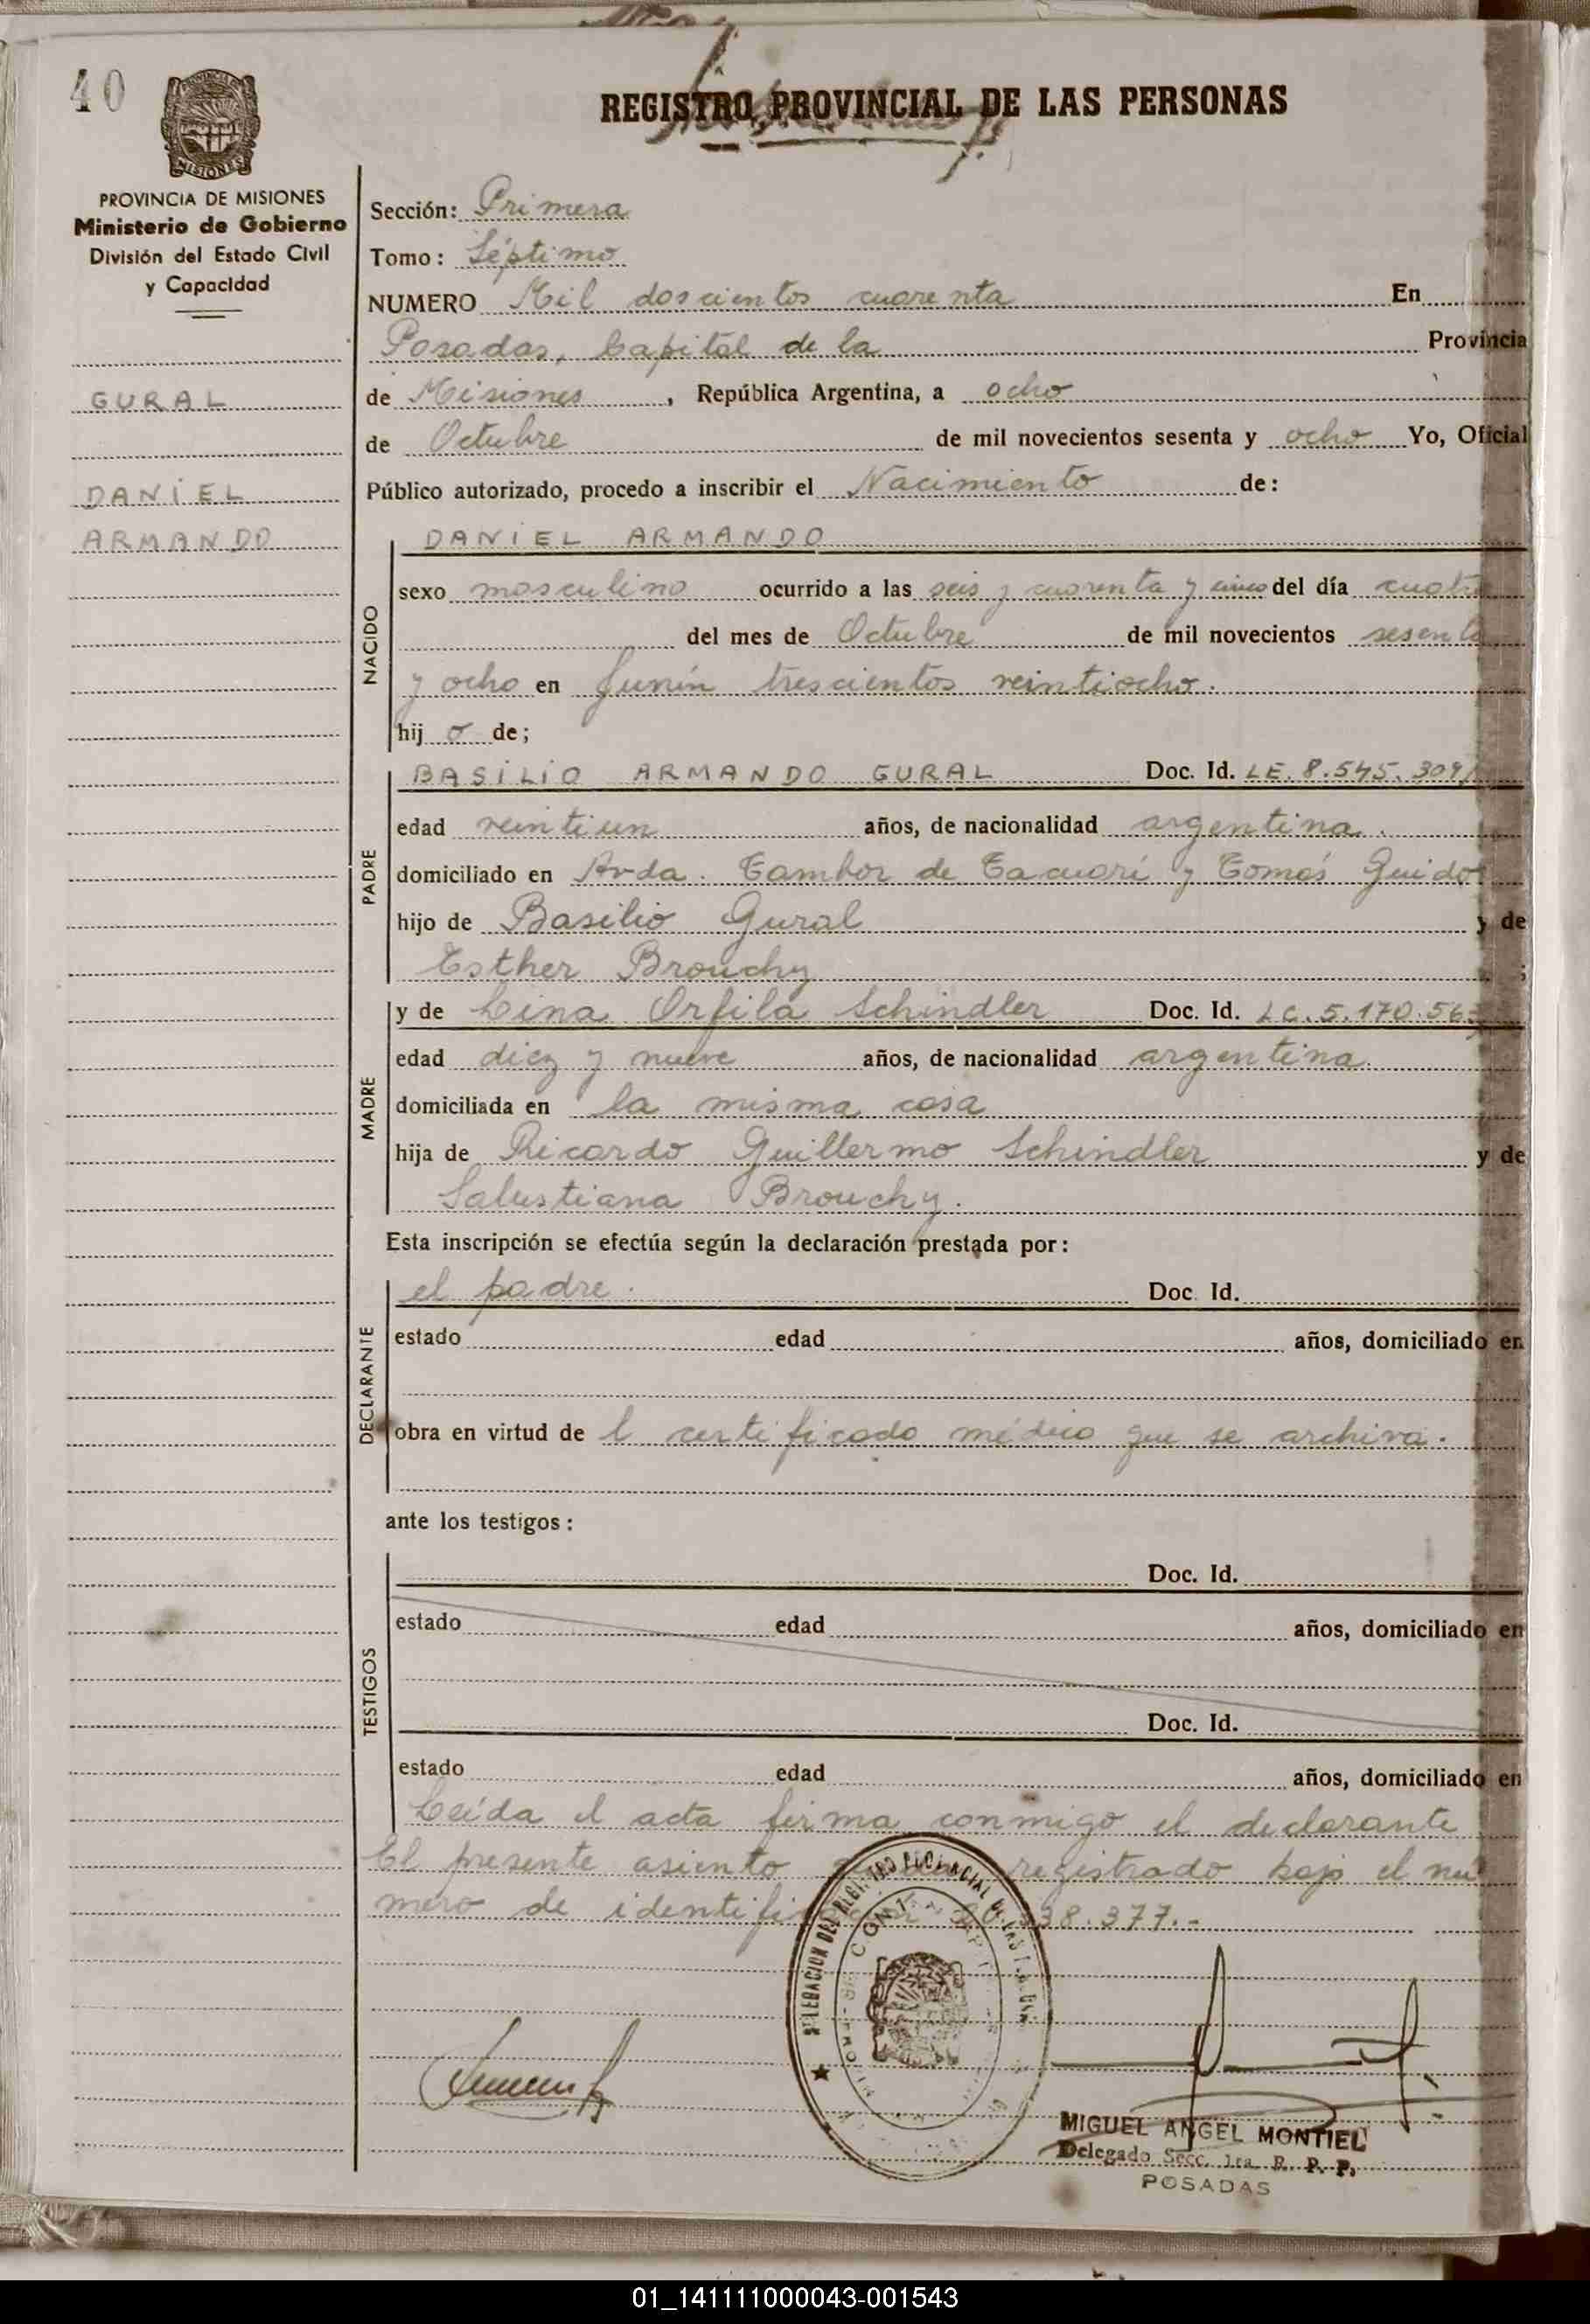 40
REGISTRO PROVINCIAL DE LAS PERSONAS
PROVINCIA DE MISIONES
Ministerio de Gobierno
División del Estado Civil
y Capacidad
GURAL
DANIEL
ARMANDO
Sección: Primera
Tomo: Séptimo
NUMERO Mil doscientos cuarenta En
Posadas, Capital de la Provincia
de Misiones, República Argentina, a ocho
de Octubre de mil novecientos sesenta y ocho Yo, Oficial
Público autorizado, procedo a inscribir el Nacimiento de:
NACIDO
DANIEL ARMANDO
sexo masculino ocurrido a las seis y cuarenta y cinco del día cuatro
del mes de Octubre de mil novecientos sesenta
y ocho en Junín trescientos veintiocho.
hijo de;
PADRE
BASILIO ARMANDO GURAL Doc. Id. LE. 8.545.309
edad veintiun años, de nacionalidad argentina.
domiciliado en Avda. Tambor de Tacuarí y Tomás Guido
hijo de Basilio Gural y de
Esther Brouchy ;
MADRE
y de Lina Orfila Schindler Doc. Id. LC. 5.170.56
edad diez y nueve años, de nacionalidad argentina.
domiciliada en la misma casa
hija de Ricardo Guillermo Schindler y de
Salustiana Brouchy.
Esta inscripción se efectúa según la declaración prestada por:
DECLARANTE
el padre. Doc. Id.
estado edad años, domiciliado en
obra en virtud de l certificado médico que se archiva.
ante los testigos:
TESTIGOS
Doc. Id.
estado edad años, domiciliado en
Doc. Id.
estado edad años, domiciliado en
Leída el acta firma conmigo el declarante
El presente asiento registrado bajo el nú
mero de 38.377.-
DELEGACION DEL REGISTRO PROVINCIAL DE LAS
MIGUEL ANGEL MONTIEL
Delegado Secc. 1ra. R. P. P.
POSADAS
01_141111000043-001543